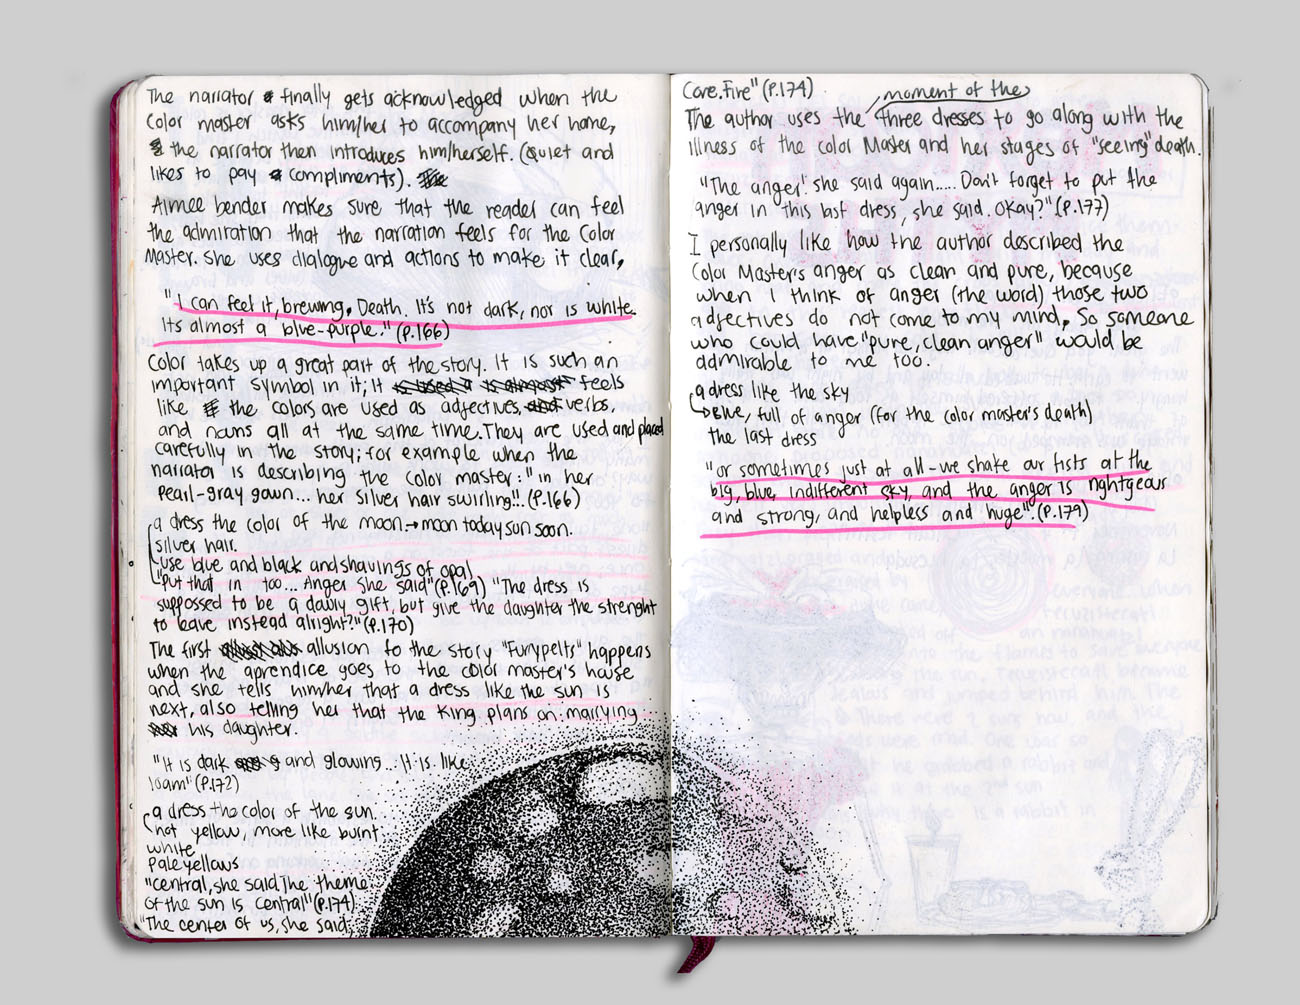 The narrator finally gets acknowledged when the
color master asks him/her to accompany her home,
the narrator then introduces him/herself. (Quiet and
likes to pay compliments).
Aimee bender makes sure that the reader can feel
the admiration that the narration feels for the Color
Master. She uses dialogue and actions to make it clear,
"I can feel it, brewing. Death. It's not dark, nor is white.
Its almost a blue-purple." (P.166)
Color takes up a great part of the story. It is such an
important symbol in it; it feels
like the colors are used as adjectives, verbs,
and nouns all at the same time. They are used and placed
carefully in the story; for example when the
narrator is describing the color master: "in her
pearl-gray gown... her silver hair swirling!!. (P.166)
a dress the color of the moon → moon today sun soon.
silver hair.
use blue and black and shavings of opal
"Put that in too... Anger she said" (P.169) "The dress is
suppossed to be a dawly gift, but give the daughter the strenght
to leave instead alright?" (P.170)
The first allusion to the story "Furypelts" happens
when the aprendice goes to the color master's house
and she tells him/her that a dress like the sun is
next, also telling her that the King plans on marrying
his daughter.
"It is dark and glowing... It is like
loam" (P.172)
a dress the color of the sun.
not yellow, more like burnt
white
Pale yellows
"central, she said. The theme
of the sun is central" (P.174)
"The center of us, she said.
Core. Fire" (P.174)
The author uses the moment of the three dresses to go along with the
illness of the color Master and her stages of "seeing" death.
"The anger' she said again..... Don't forget to put the
anger in this last dress, she said. Okay?" (P.177)
I personally like how the author described the
Color Master's anger as clean and pure, because
when I think of anger (the word) those two
adjectives do not come to my mind. So someone
who could have "pure, clean anger" would be
admirable to me too.
a dress like the sky
→ Blue, full of anger (for the color master's death)
the last dress
"or sometimes just at all - we shake our fists at the
big, blue, indifferent sky, and the anger is rightgeous
and strong, and helpless and huge". (P.179)